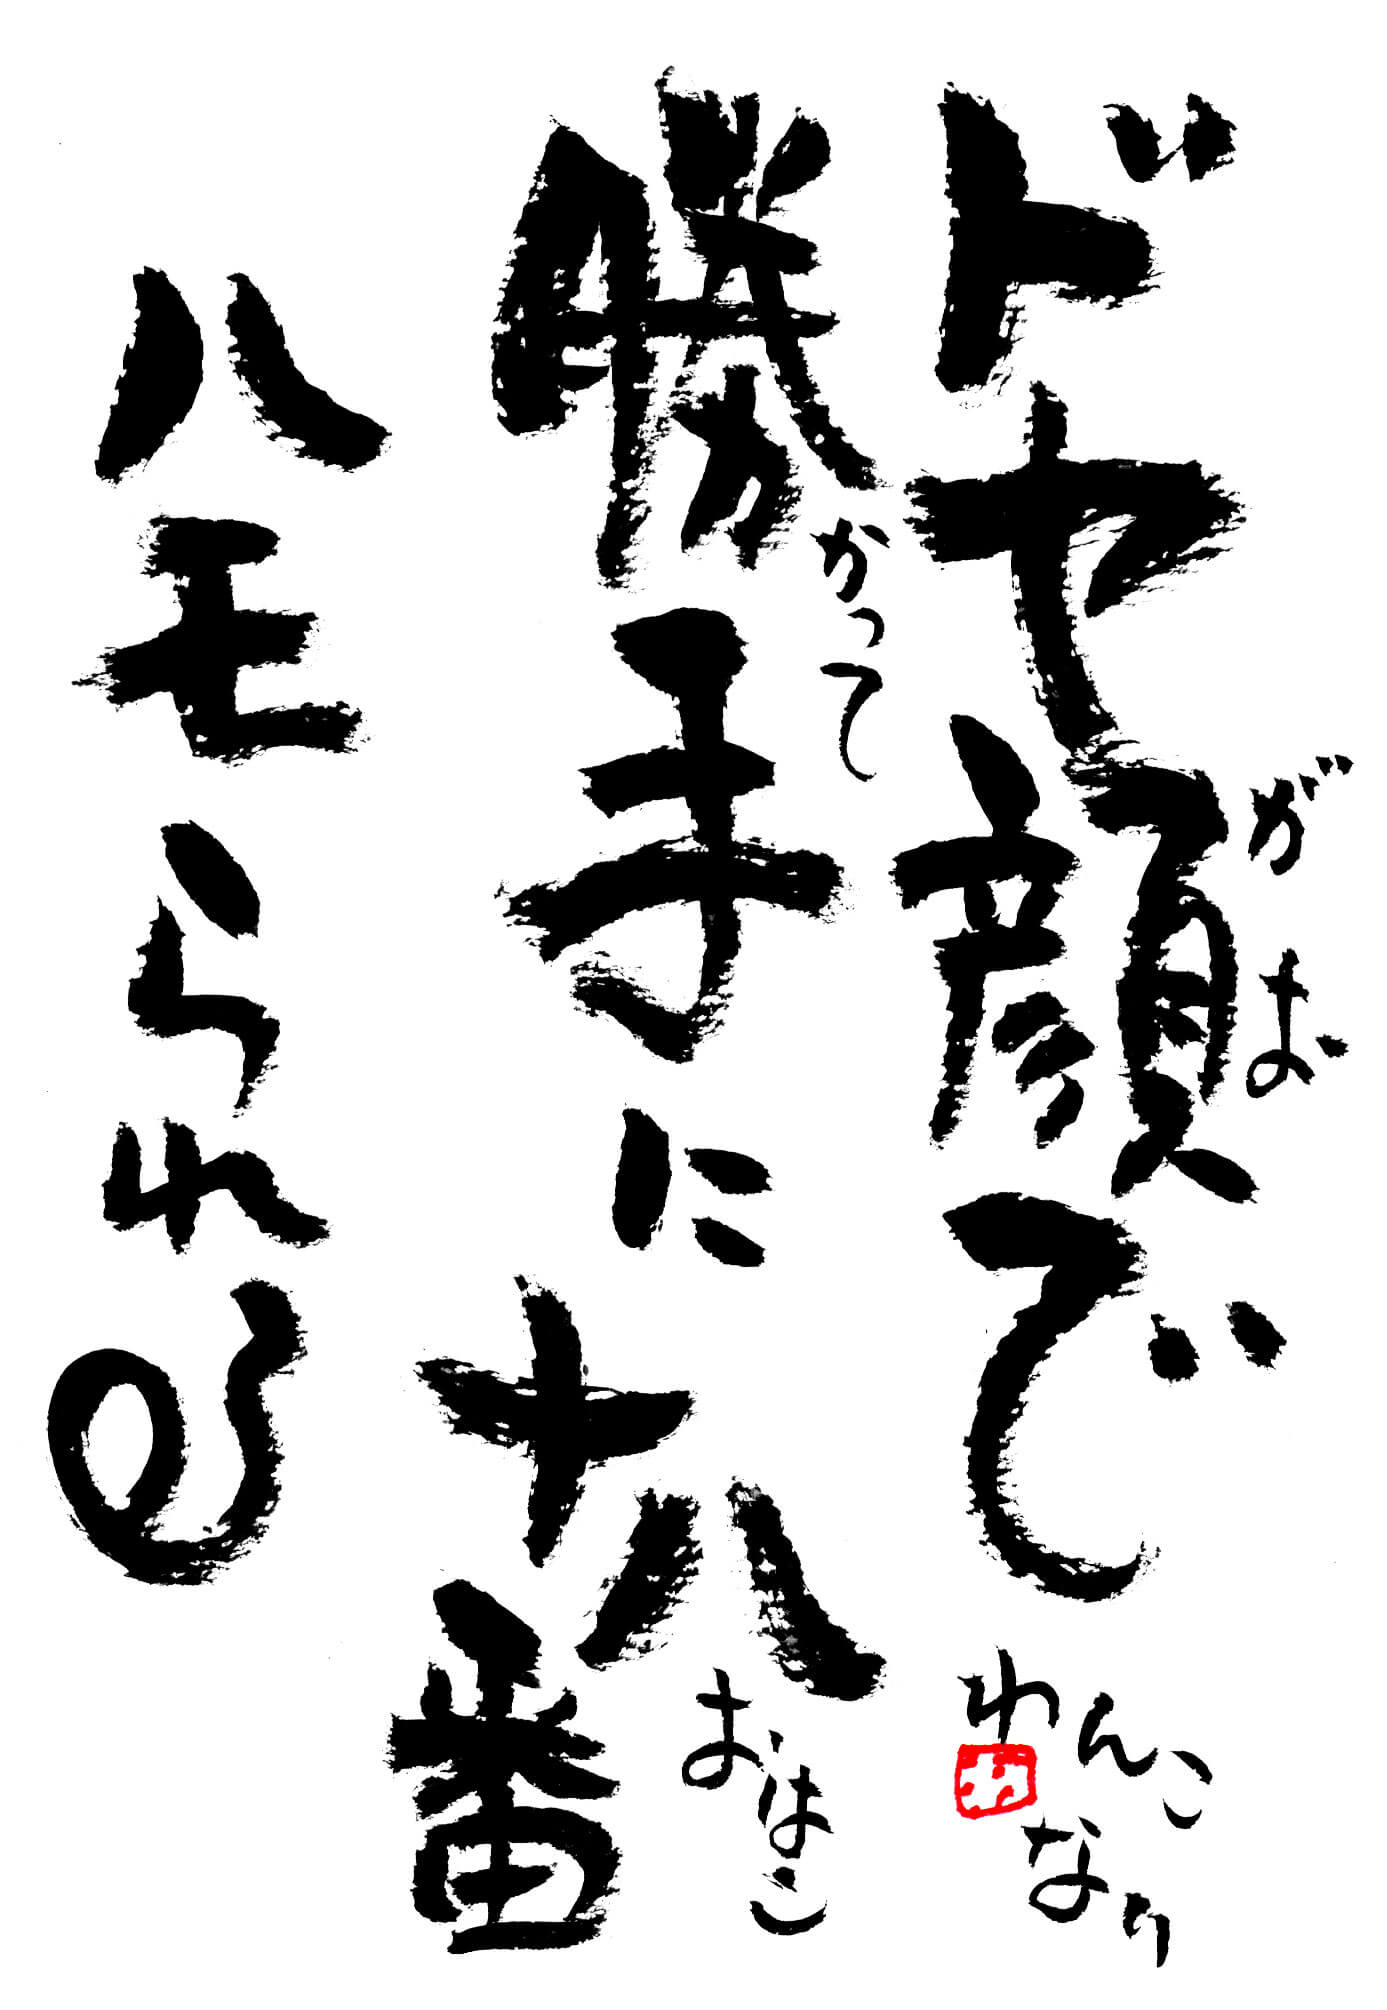 ドヤ顔で
がお
勝手に十八番
かって
おはこ
ハモられる
わんこ
なり